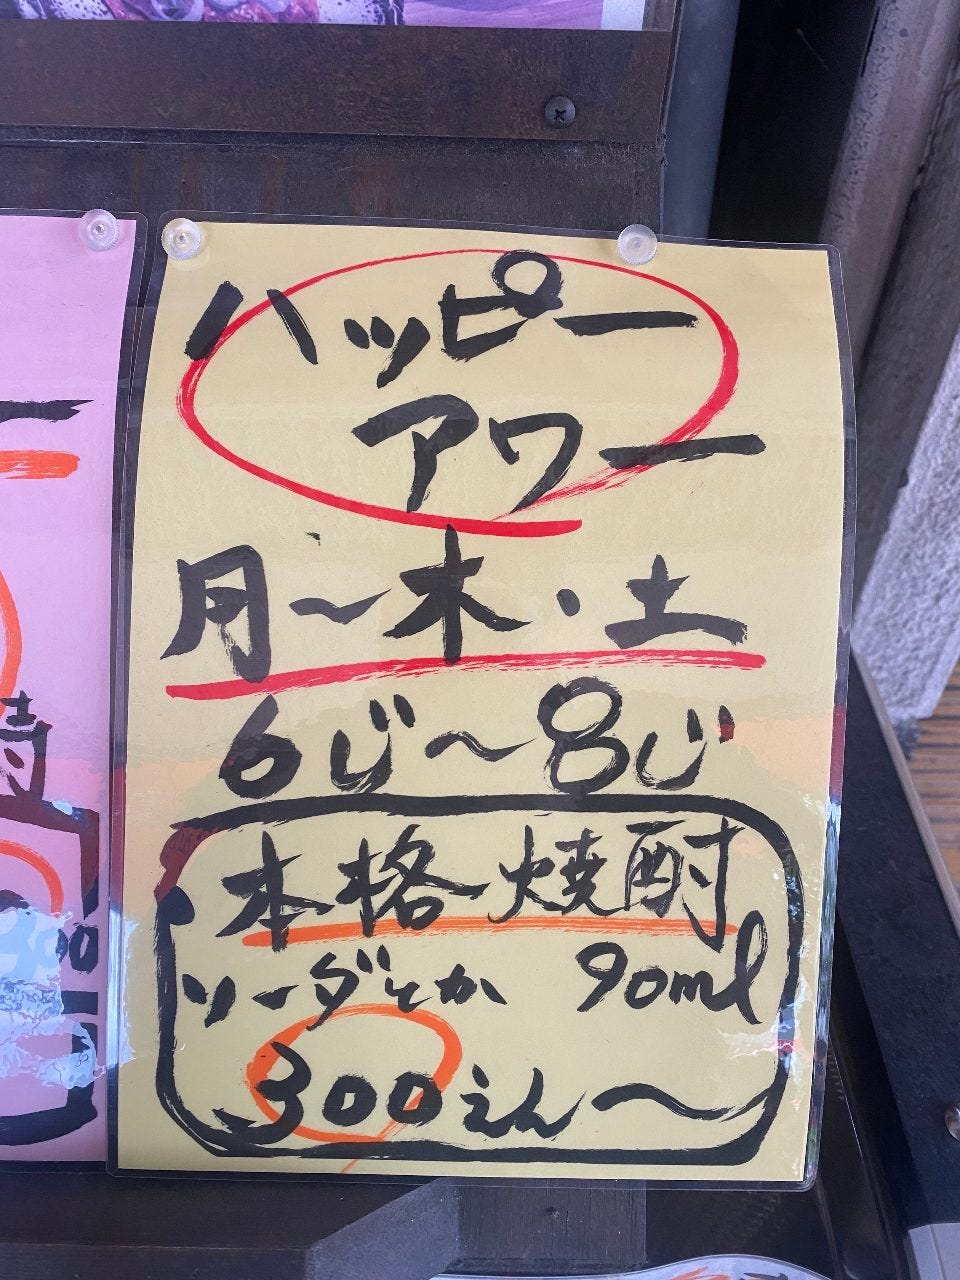 ハッピー
アワー
月〜木・土
6じ〜8じ
本格焼酎
ソーダとか 90ml
300えん〜
時
300